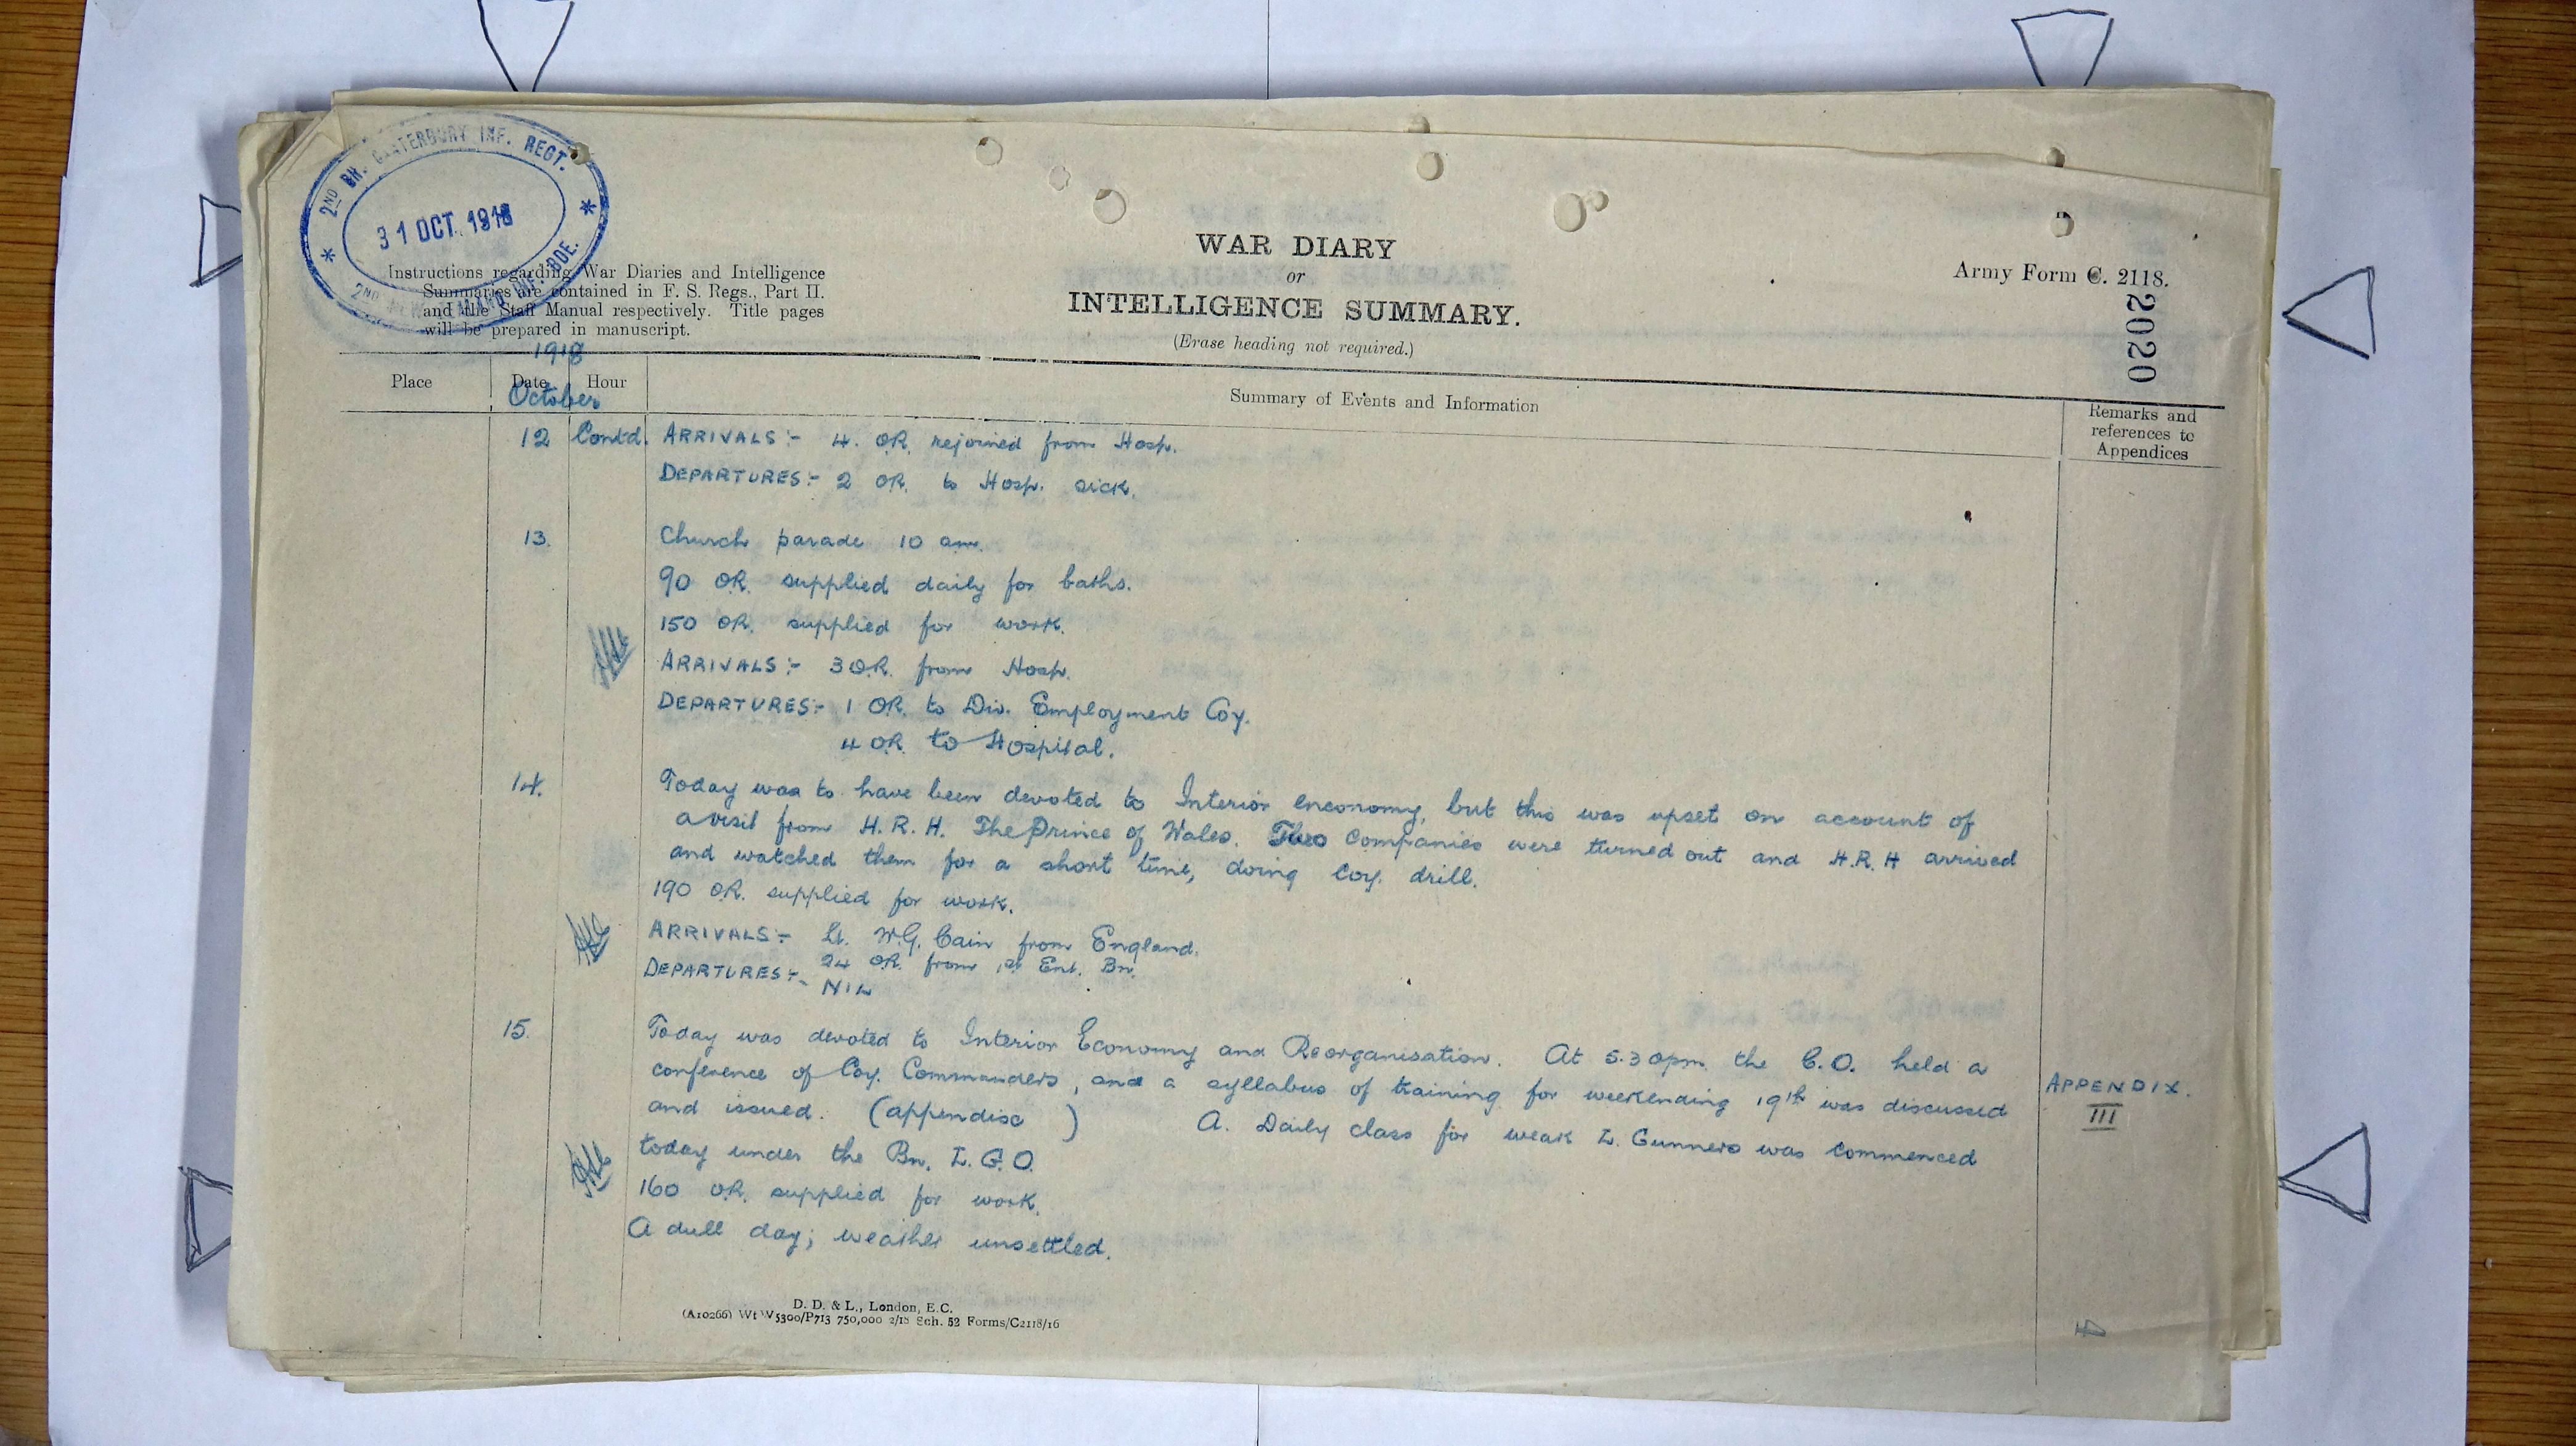 2ND BN. CANTERBURY INF. REGT.
31 OCT. 1918
2ND NEW ZEALAND INF. BDE.
Instructions regarding War Diaries and Intelligence
Summaries are contained in F. S. Regs., Part II.
and the Staff Manual respectively. Title pages
will be prepared in manuscript.
WAR DIARY
or
INTELLIGENCE SUMMARY.
(Erase heading not required.)
Army Form C. 2118.
2020
1918
Place Date Hour Summary of Events and Information
October
Remarks and
references to
Appendices
12 Contd. ARRIVALS:- 4. OR. rejoined from Hosp.
DEPARTURES:- 2 OR. to Hosp. sick.
13. Church parade 10 am.
90 OR. supplied daily for baths.
150 OR. supplied for work.
ARRIVALS:- 3 O.R. from Hosp.
DEPARTURES:- 1 OR. to Div. Employment Coy.
4 OR. to Hospital.
14. Today was to have been devoted to Interior Enconomy, but this was upset on account of
a visit from H. R. H. The Prince of Wales. Two Companies were turned out and H.R.H arrived
and watched them for a short time, doing Coy. drill.
190 O.R. supplied for work.
ARRIVALS:- Lt. W.G. Cain from England.
24 OR. from 1st Ent. Bn.
DEPARTURES:- NIL
15. Today was devoted to Interior Economy and Reorganisation. At 5.30pm. the C.O. held a
conference of Coy. Commanders, and a syllabus of training for weekending 19th was discussed
and issued. (appendix ) A. Daily class for weak L. Gunners was commenced
APPENDIX.
III
today under the Bn. L. G. O.
160 O.R. supplied for work.
A dull day; weather unsettled.
D. D. & L., London, E.C.
(A10266) Wt W5300/P713 750,000 2/18 Sch. 52 Forms/C2118/16
4